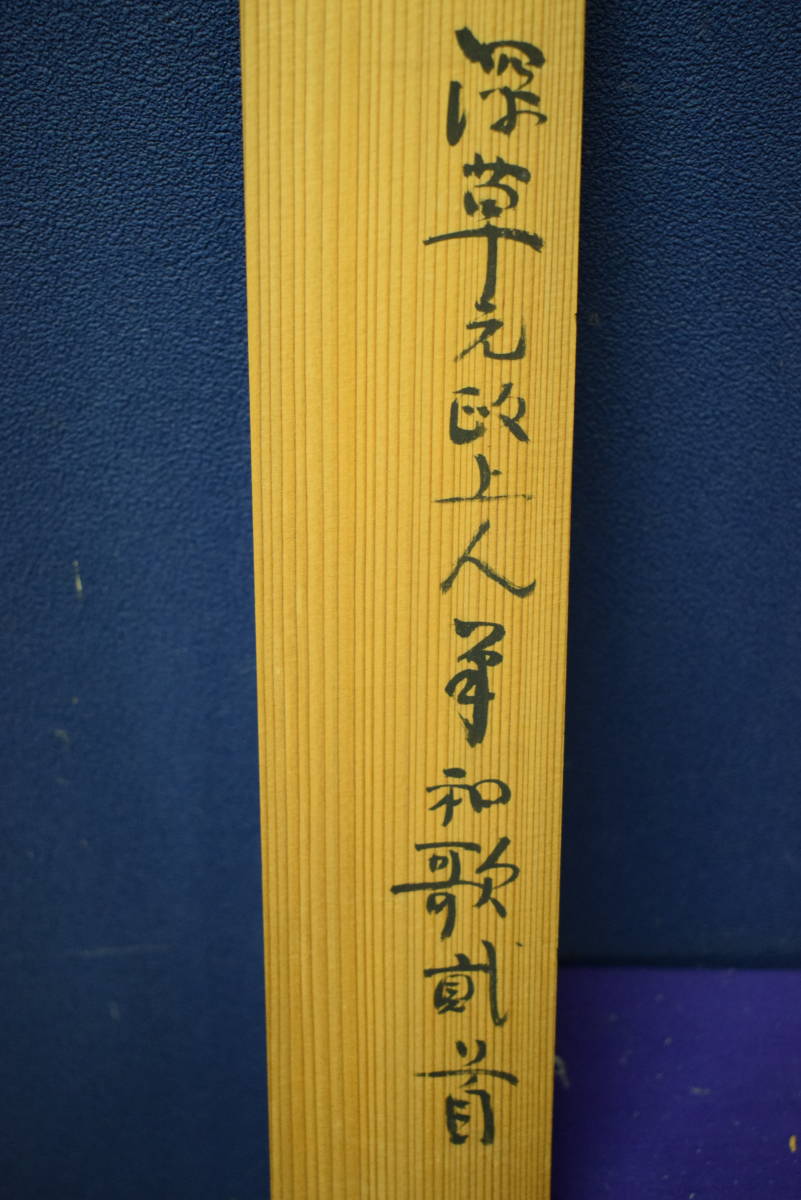 深草元政上人筆和歌貳首